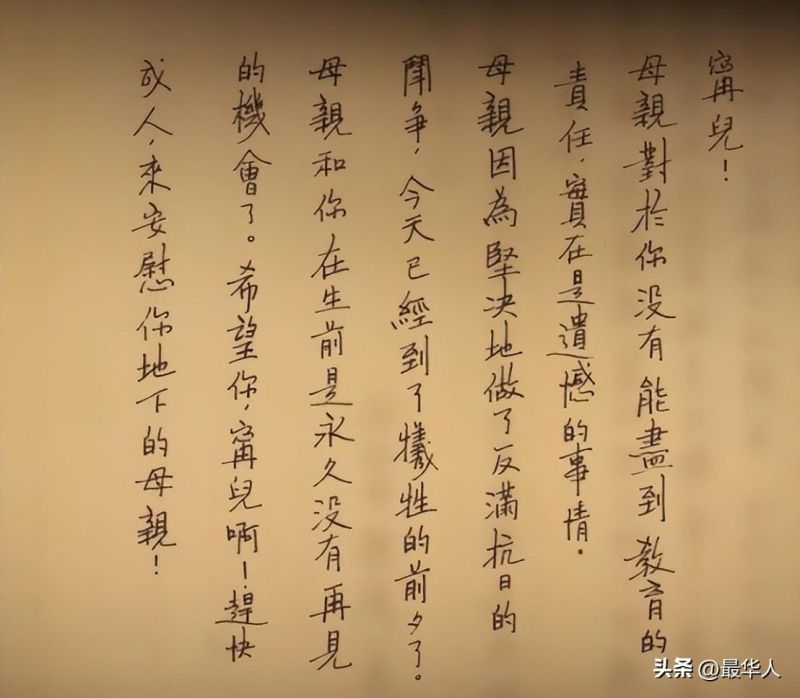 甯兒！
母親對於你没有能盡到教育的
責任，實在是遺憾的事情。
母親因為堅决地做了反滿抗日的
鬥争，今天已經到了犧牲的前夕了。
母親和你，在生前是永久没有再見
的機會了。希望你，甯兒啊！趕快
成人，來安慰你地下的母親！
头条 @最华人